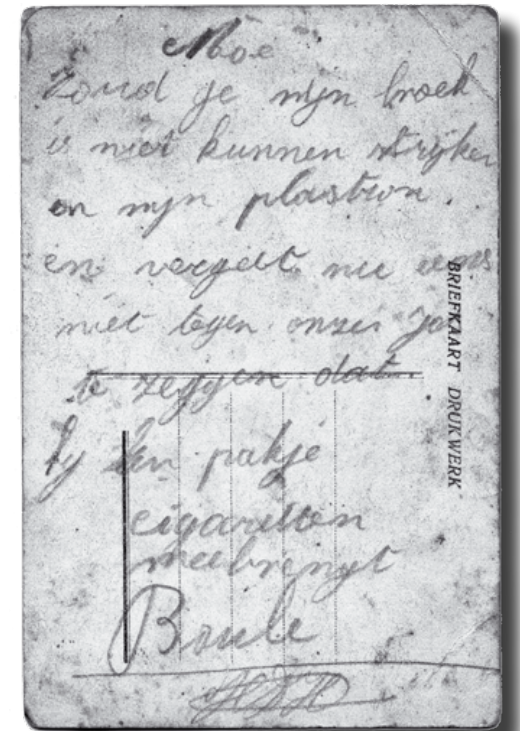 Moe
Zoud je mijn broek
is niet kunnen strijken
en mijn plastron.
en vergeet nu eens
niet tegen onzen Jo
te zeggen dat
hij een pakje
cigaretten
meebrengt
Boule
BRIEFKAART DRUKWERK